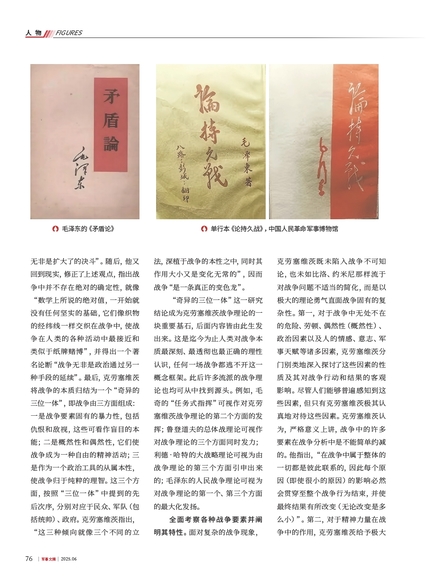 人 物 FIGURES
矛盾論
毛泽东
論持久戰
毛澤東著
八路軍 翻印
論持久戰
毛泽东的《矛盾论》
单行本《论持久战》,中国人民革命军事博物馆
无非是扩大了的决斗”。随后,他又
回到现实,修正了上述观点,指出战
争中并不存在绝对的确定性,就像
“数学上所说的绝对值,一开始就
没有任何坚实的基础,它们像织物
的经纬线一样交织在战争中,使战
争在人类的各种活动中最接近和
类似于纸牌赌博”,并得出一个著
名论断“战争无非是政治通过另一
种手段的延续”。最后,克劳塞维茨
将战争的本质归结为一个“奇异的
三位一体”,即战争由三方面组成:
一是战争要素固有的暴力性,包括
仇恨和敌视,这些可看作盲目的本
能;二是概然性和偶然性,它们使
战争成为一种自由的精神活动;三
是作为一个政治工具的从属本性,
使战争归于纯粹的理智。这三个方
面,按照“三位一体”中提到的先
后次序,分别对应于民众、军队(包
括统帅)、政府。克劳塞维茨指出,
“这三种倾向就像三个不同的立
法,深植于战争的本性之中,同时其
作用大小又是变化无常的”,因而
战争“是一条真正的变色龙”。
“奇异的三位一体”这一研究
结论成为克劳塞维茨战争理论的一
块重要基石,后面内容皆由此生发
出来。这是迄今为止人类对战争本
质最深刻、最透彻也最正确的理性
认识,任何一场战争都逃不开这一
概念框架。此后许多流派的战争理
论也均可从中找到源头。例如,毛
奇的“任务式指挥”可视作对克劳
塞维茨战争理论的第二个方面的发
挥;鲁登道夫的总体战理论可视作
对战争理论的三个方面同时发力;
利德·哈特的大战略理论可视为由
战争理论的第三个方面引申出来
的;毛泽东的人民战争理论可视为
对战争理论的第一个、第三个方面
的最大化发扬。
全面考察各种战争要素并阐
明其特性。面对复杂的战争现象,
克劳塞维茨既未陷入战争不可知
论,也未如比洛、约米尼那样流于
对战争问题不适当的简化,而是以
极大的理论勇气直面战争固有的复
杂性。第一,对于战争中无处不在
的危险、劳顿、偶然性(概然性)、
政治因素以及人的情感、意志、军
事天赋等诸多因素,克劳塞维茨分
门别类地深入探讨了这些因素的性
质及其对战争行动和结果的客观
影响。尽管人们能够普遍感知到这
些因素,但只有克劳塞维茨极其认
真地对待这些因素。克劳塞维茨认
为,严格意义上讲,战争中的许多
要素在战争分析中是不能简单约减
的。他指出,“在战争中属于整体的
一切都是彼此联系的,因此每个原
因(即使很小的原因)的影响必然
会贯穿至整个战争行为结束,并使
最终结果有所改变(无论改变是多
么小)”。第二,对于精神力量在战
争中的作用,克劳塞维茨给予极大
76 军事文摘 2025.06